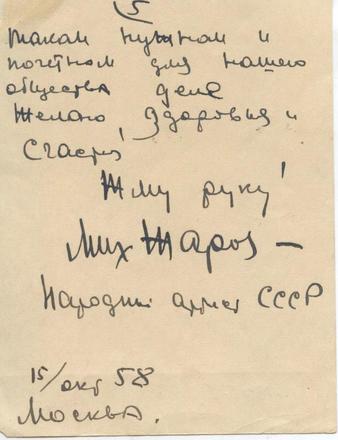 5
таком нужном и
почётном для нашего
общества деле
Желаю здоровья и
счастья!
Жму руку!
Мих Жаров –
Народный артист СССР
15/окт 58
Москва.